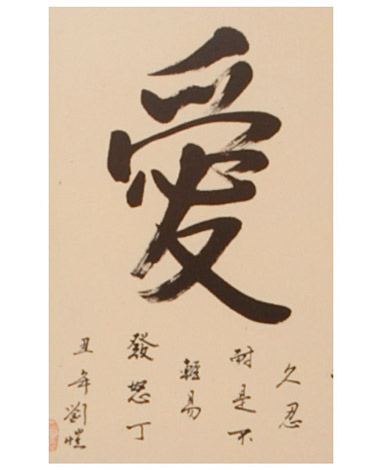 愛
久忍
耐是不
輕易
發怒丁
丑年劉愷